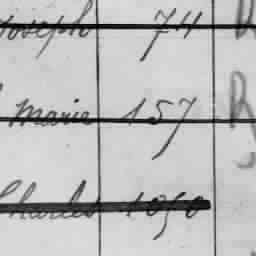 Joseph 74
Marie 157
Charles 1050